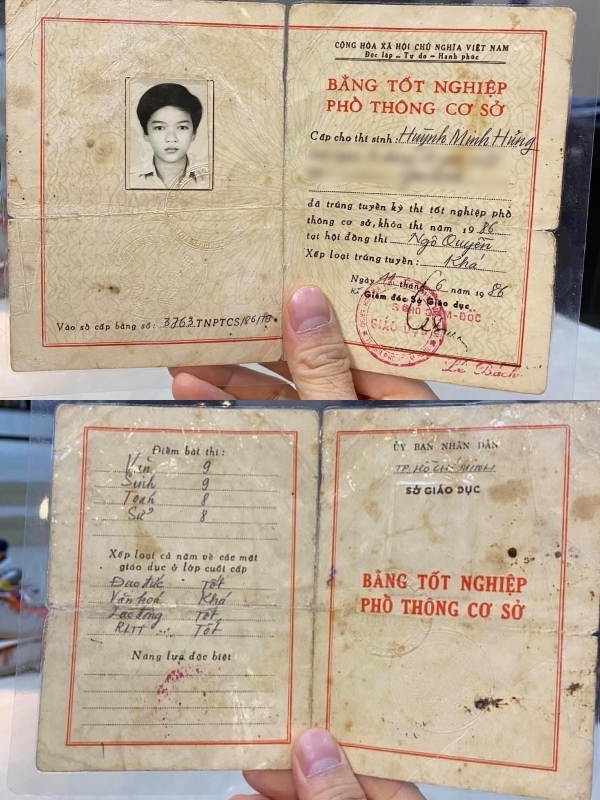 CỘNG HÒA XÃ HỘI CHỦ NGHĨA VIỆT NAM
Độc lập – Tự do – Hạnh phúc
BẰNG TỐT NGHIỆP
PHỔ THÔNG CƠ SỞ
Cấp cho thí sinh: Huỳnh Minh Hưng
đã trúng tuyển kỳ thi tốt nghiệp phổ
thông cơ sở, khóa thi năm 1986
tại hội đồng thi Ngô Quyền
Xếp loại trúng tuyển: Khá
Ngày tháng 6 năm 1986
Giám đốc Sở Giáo dục
GIÁM-ĐỐC
GIÁO DỤC
Lê Bách
Vào sổ cấp bằng số: 3763.TNPTCS/86/HB
Điểm bài thi:
Văn 9
Sinh 9
Toán 8
Sử 8
Xếp loại cả năm về các mặt
giáo dục ở lớp cuối cấp
Đạo đức Tốt
Văn hoá Khá
Lao động Tốt
RLTT Tốt
Năng lực đặc biệt
ỦY BAN NHÂN DÂN
TP. HỒ CHÍ MINH
SỞ GIÁO DỤC
BẰNG TỐT NGHIỆP
PHỔ THÔNG CƠ SỞ